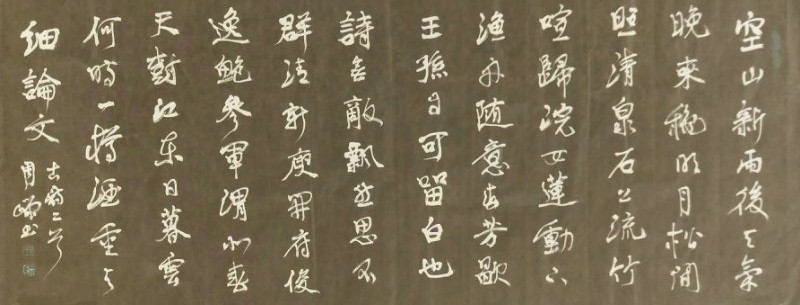 空山新雨後天氣
晚来秋明月松间
照清泉石上流竹
喧歸浣女蓮動下
渔舟随意春芳歇
王孫自可留白也
詩無敵飘然思不
群清新庾開府俊
逸鲍参軍渭北春
天樹江东日暮雲
何時一樽酒重与
細論文
古詩二首
周书